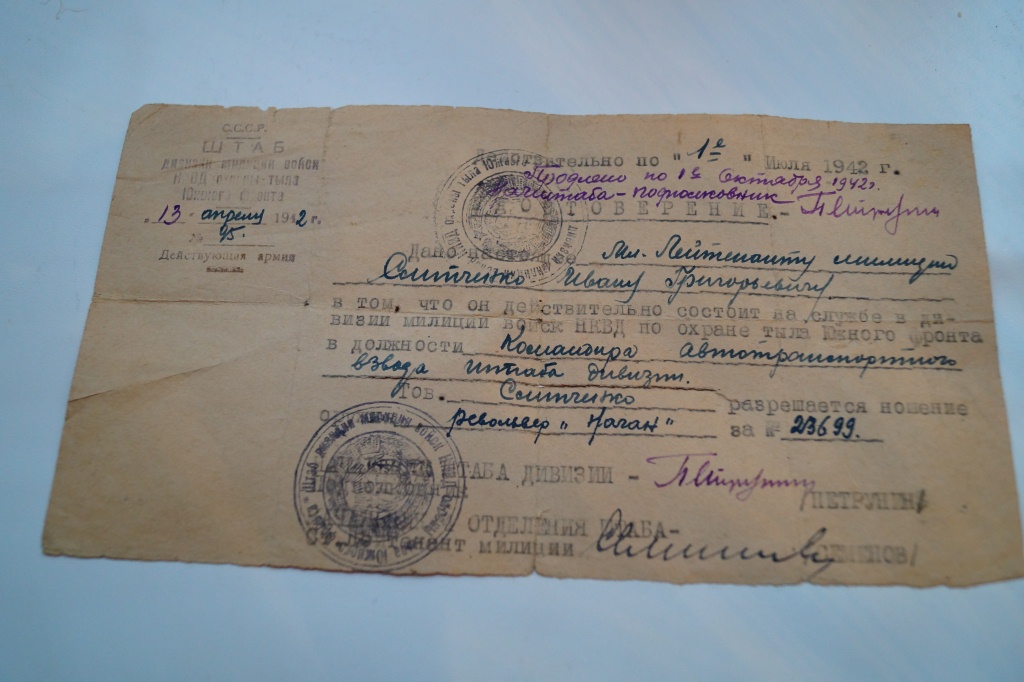 С.С.С.Р.
ШТАБ
дивизии милиции войск
НКВД охраны тыла
Южного фронта
"13" апреля 1942 г.
№ 95.
Действующая армия
Действительно по "1е" Июля 1942 г.
Продлено по 1е Октября 1942г.
Начштаба-подполковник
ТОВЕРЕНИЕ.-
Дано
Мл. Лейтенанту милиции
Ивану Григорьевичу
в том, что он действительно состоит на службе в ди-
визии милиции войск НКВД по охране тыла Южного фронта
в должности Командира Автотранспортного
взвода штаба дивизии.
Тов. разрешается ношение
револьвер "Наган" за № 23699.
ШТАБА ДИВИЗИИ -
/ПЕТРУНИН/
ОТДЕЛЕНИЯ ШТАБА-
милиции